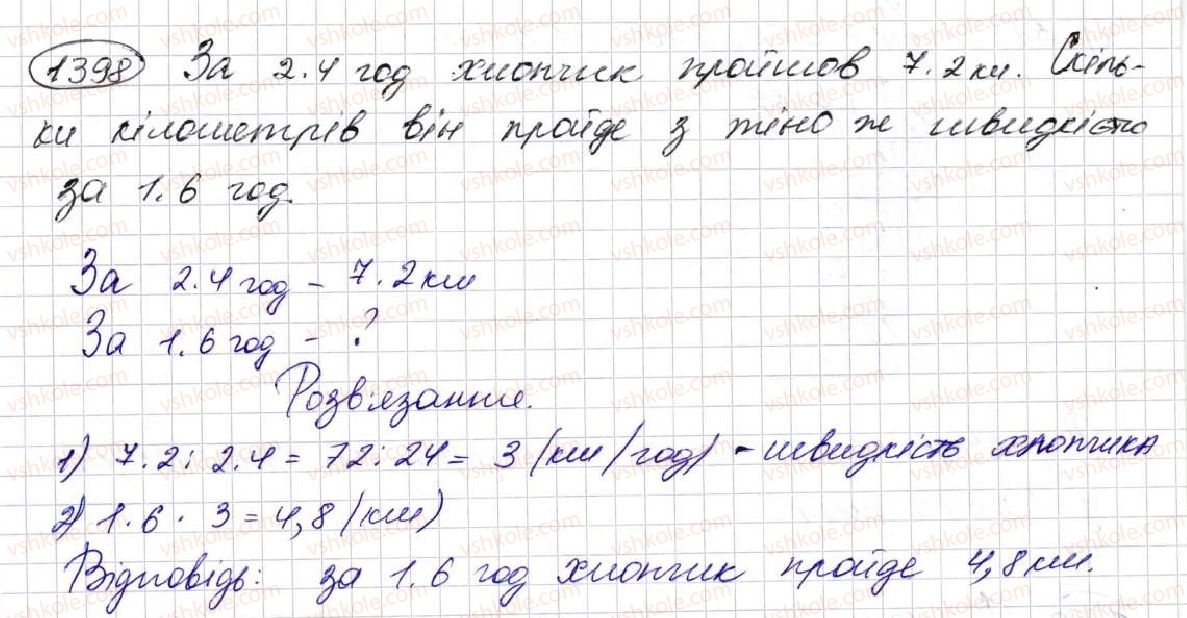 1398 За 2.4 год хлопчик пройшов 7.2 км. Скіль-
ки кілометрів він пройде з тією ж швидкістю
за 1.6 год.
За 2.4 год - 7.2 км
За 1.6 год - ?
Розв'язання.
1) 7.2 : 2.4 = 72 : 24 = 3 (км/год) - швидкість хлопчика
2) 1.6 · 3 = 4,8 (км)
Відповідь: за 1.6 год хлопчик пройде 4,8 км.